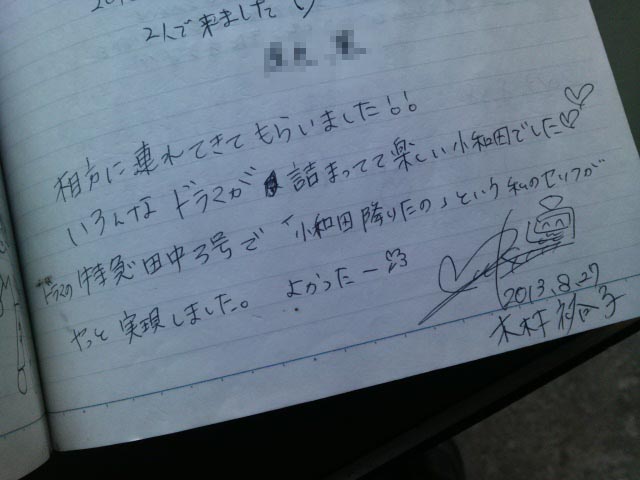 2人で来ました
相方に連れてきてもらいました!!
いろんなドラマが詰まってて楽しい小和田でした♡♡
ドラマの特急田中3号で「小和田降りたの」という私のセリフが
やっと実現しました。よかったー
2013.8.27
木村裕子